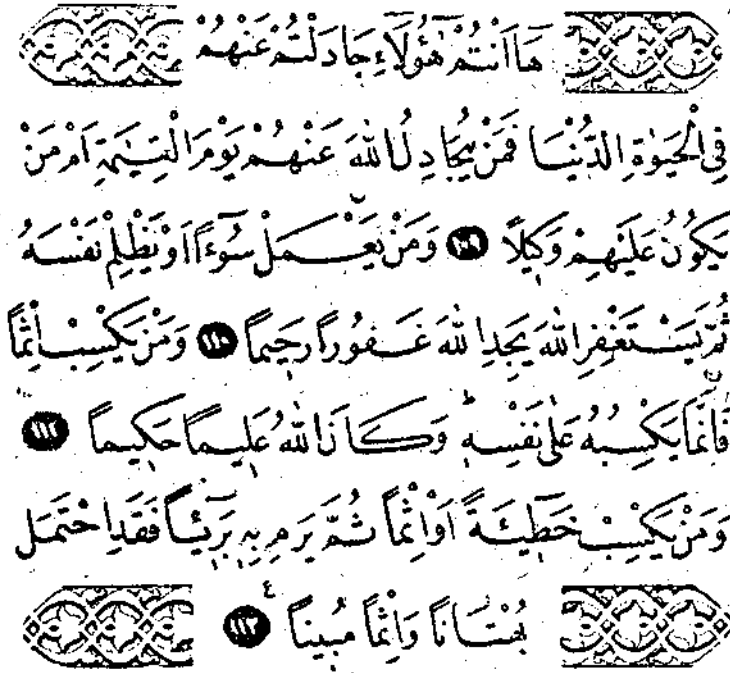 هَٓااَنْتُمْ هٰٓؤُ۬لَٓاءِ جَادَلْتُمْ عَنْهُمْ
فِي الْحَيٰوةِ الدُّنْيَا فَمَنْ يُجَادِلُ اللّٰهَ عَنْهُمْ يَوْمَ الْقِيٰمَةِ اَمْ مَنْ
يَكُونُ عَلَيْهِمْ وَكِيلًا ﴿١٠٩﴾ وَمَنْ يَعْمَلْ سُٓوءًا اَوْ يَظْلِمْ نَفْسَهُ
ثُمَّ يَسْتَغْفِرِ اللّٰهَ يَجِدِ اللّٰهَ غَفُورًا رَحِيمًا ﴿١١٠﴾ وَمَنْ يَكْسِبْ اِثْمًا
فَاِنَّمَا يَكْسِبُهُ عَلٰى نَفْسِهٖ ط وَكَانَ اللّٰهُ عَلِيمًا حَكِيمًا ﴿١١١﴾
وَمَنْ يَكْسِبْ خَطِٓيـَٔةً اَوْ اِثْمًا ثُمَّ يَرْمِ بِهٖ بَرِٓيـًٔا فَقَدِ احْتَمَلَ
بُهْتَانًا وَاِثْمًا مُبِينًا ع ﴿١١٢﴾